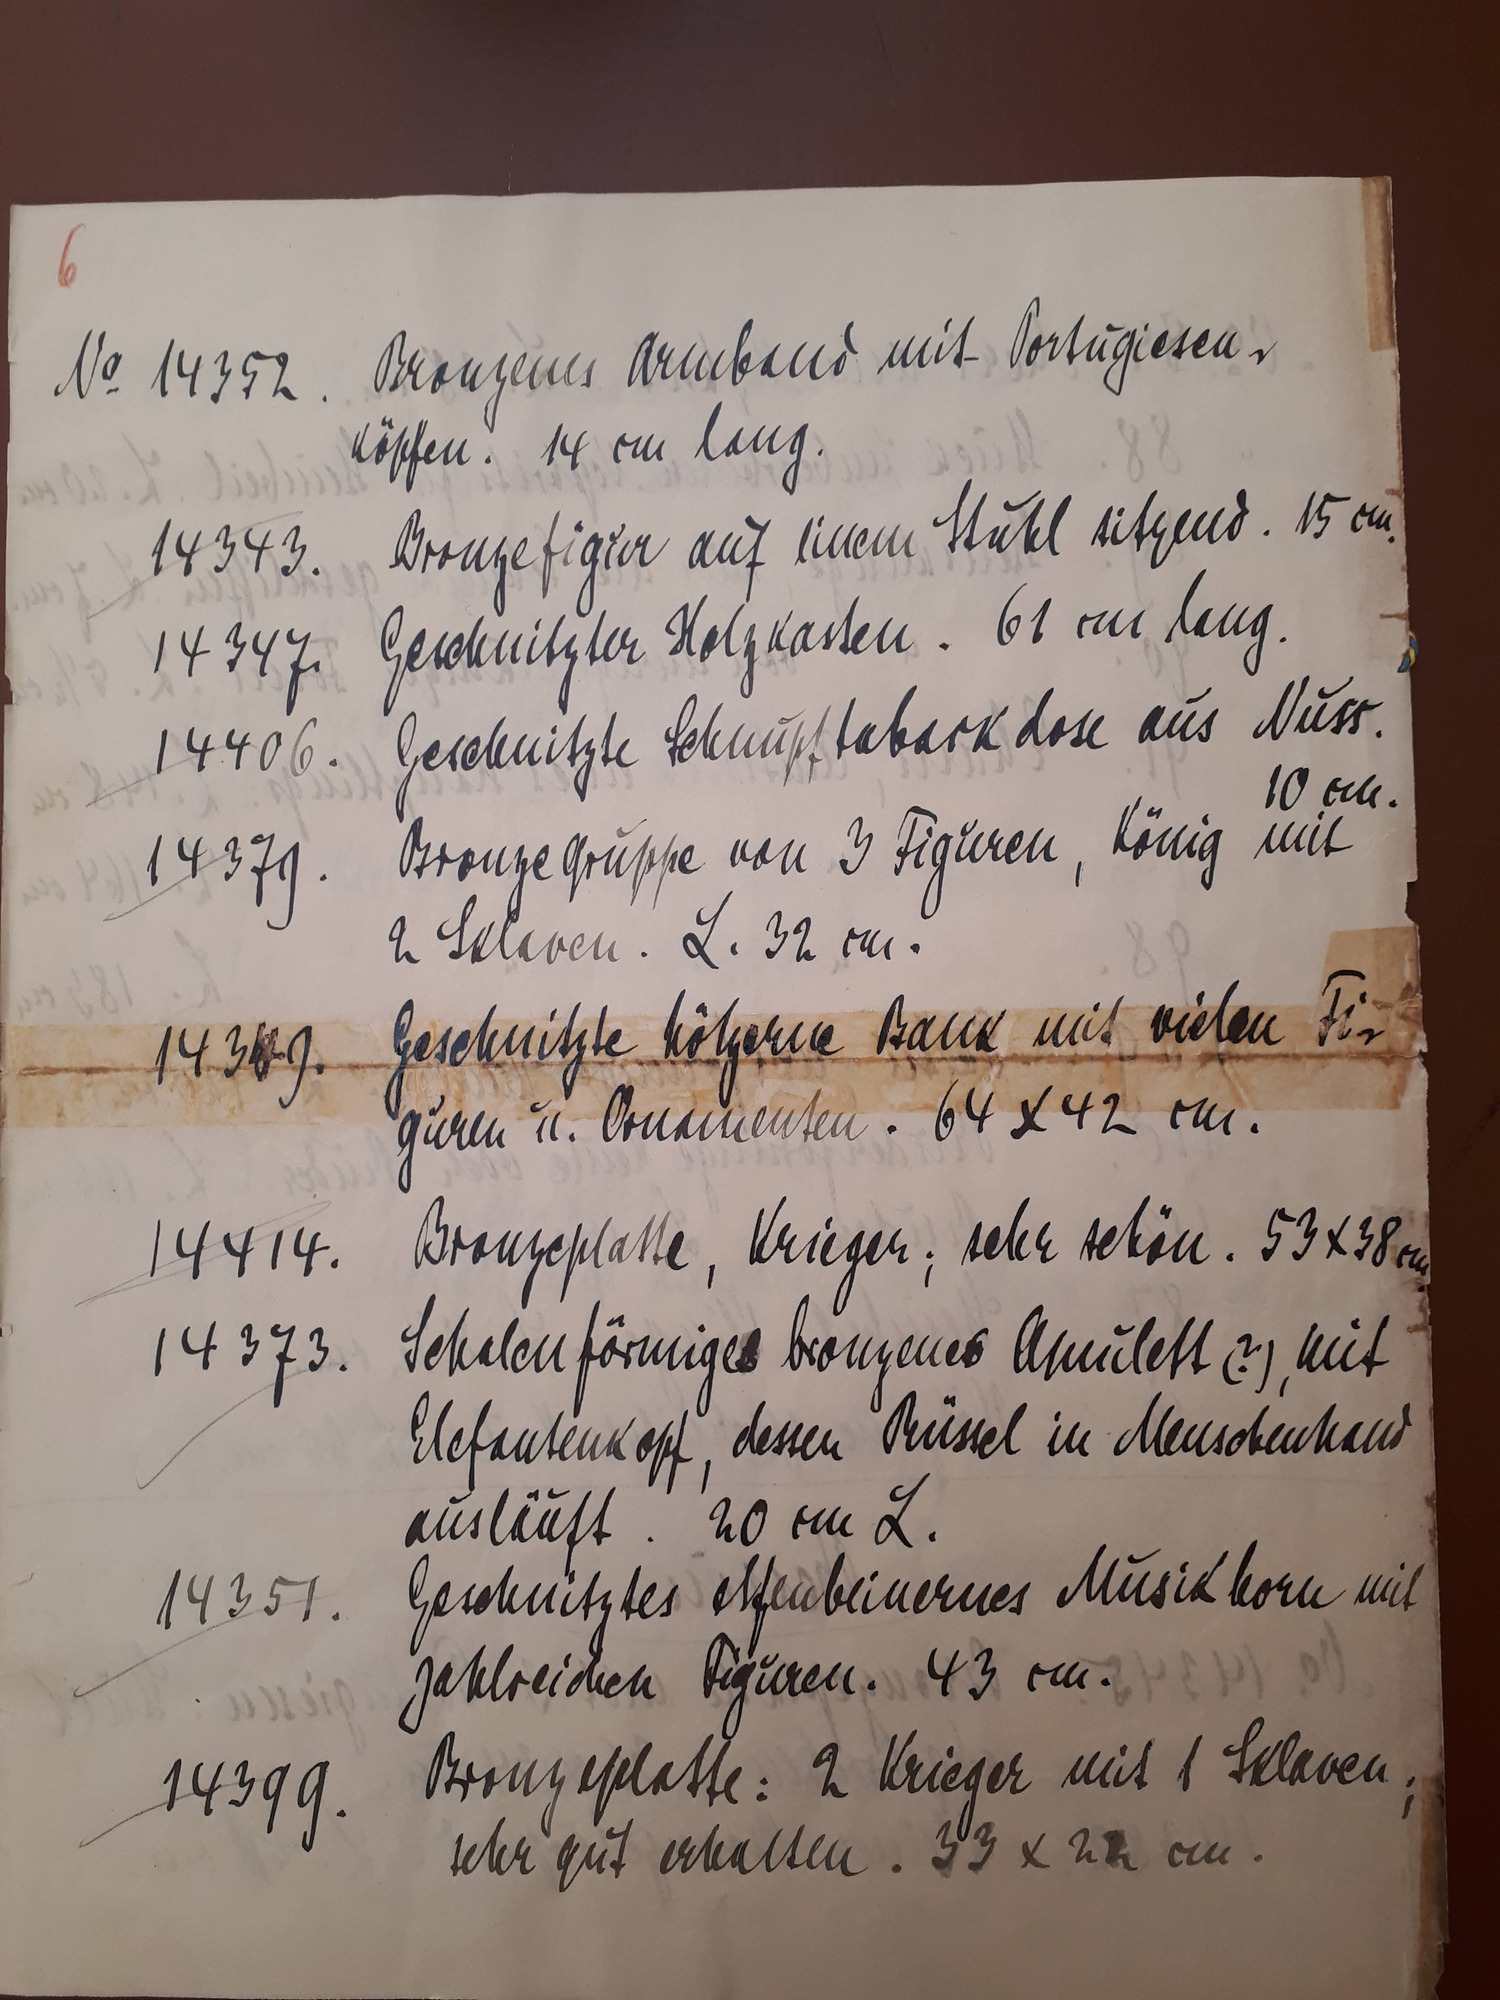 6
No 14352. Bronzenes Armband mit Portugiesen-
köpfen. 14 cm lang.
14343. Bronzefigur auf einem Stuhl sitzend. 15 cm.
14347. Geschnitzter Holzkasten. 61 cm lang.
14406. Geschnitzte Schnupftabackdose aus Nuss.
10 cm.
14379. Bronzegruppe von 3 Figuren, König mit
2 Sklaven. L. 32 cm.
Geschnitzte hölzerne Bank mit vielen Fi-
guren u. Ornamenten. 64 x 42 cm.
14414. Bronzeplatte, Krieger; sehr schön. 53 x 38 cm.
14373. Schalenförmiges bronzenes Amulett (?), mit
Elefantenkopf, dessen Rüssel in Menschenhand
ausläuft. 20 cm L.
14351. Geschnitztes elfenbeinernes Musikhorn mit
zahlreichen Figuren. 43 cm.
14399. Bronzeplatte: 2 Krieger mit 1 Sklaven;
sehr gut erhalten. 33 x 22 cm.